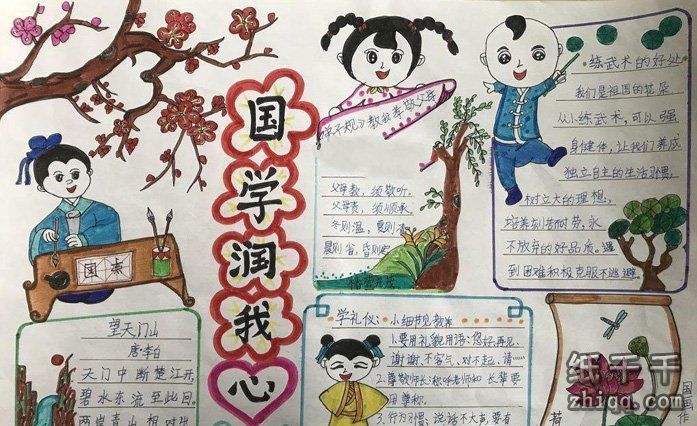 国
学
润
我
心
国 素
望天门山
唐 李白
天门中断楚江开,
碧水东流至此回。
两岸青山相对出
《弟子规》教我孝敬父母
父母教,须敬听,
父母责,须顺承,
冬则温,夏则凊
晨则省,昏则定
学礼仪:小细节见教养
1.要用礼貌用语:您好、再见、
谢谢、不客气、对不起、请……
2.尊敬师长:称呼老师和长辈要
用尊称。
3.行为习惯:说话不大声,要有
练武术的好处
我们是祖国的花朵
从小练武术,可以强
身健体,让我们养成
独立自主的生活习惯,
树立大的理想,
培养刻苦耐劳,永
不放弃的好品质。遇
到困难积极克服不逃避。
荷
国画作
纸千千
zhiqq.com